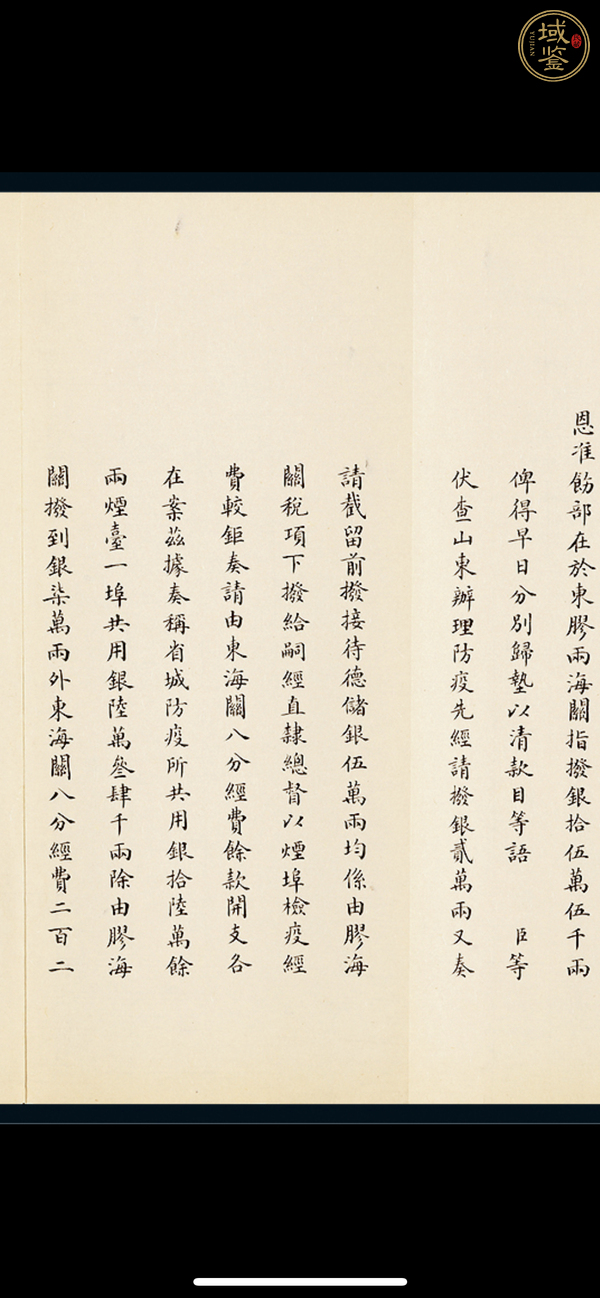 域鉴
YUJIAN
恩准飭部在於東膠兩海關指撥銀拾伍萬伍千兩
俾得早日分別歸墊以清款目等語臣等
伏查山東辦理防疫先經請撥銀貳萬兩又奏
請截留前撥接待德儲銀伍萬兩均係由膠海
關稅項下撥給嗣經直隸總督以煙埠檢疫經
費較鉅奏請由東海關八分經費餘款開支各
在案茲據奏稱省城防疫所共用銀拾陸萬餘
兩煙臺一埠共用銀陸萬叄肆千兩除由膠海
關撥到銀柒萬兩外東海關八分經費二百二